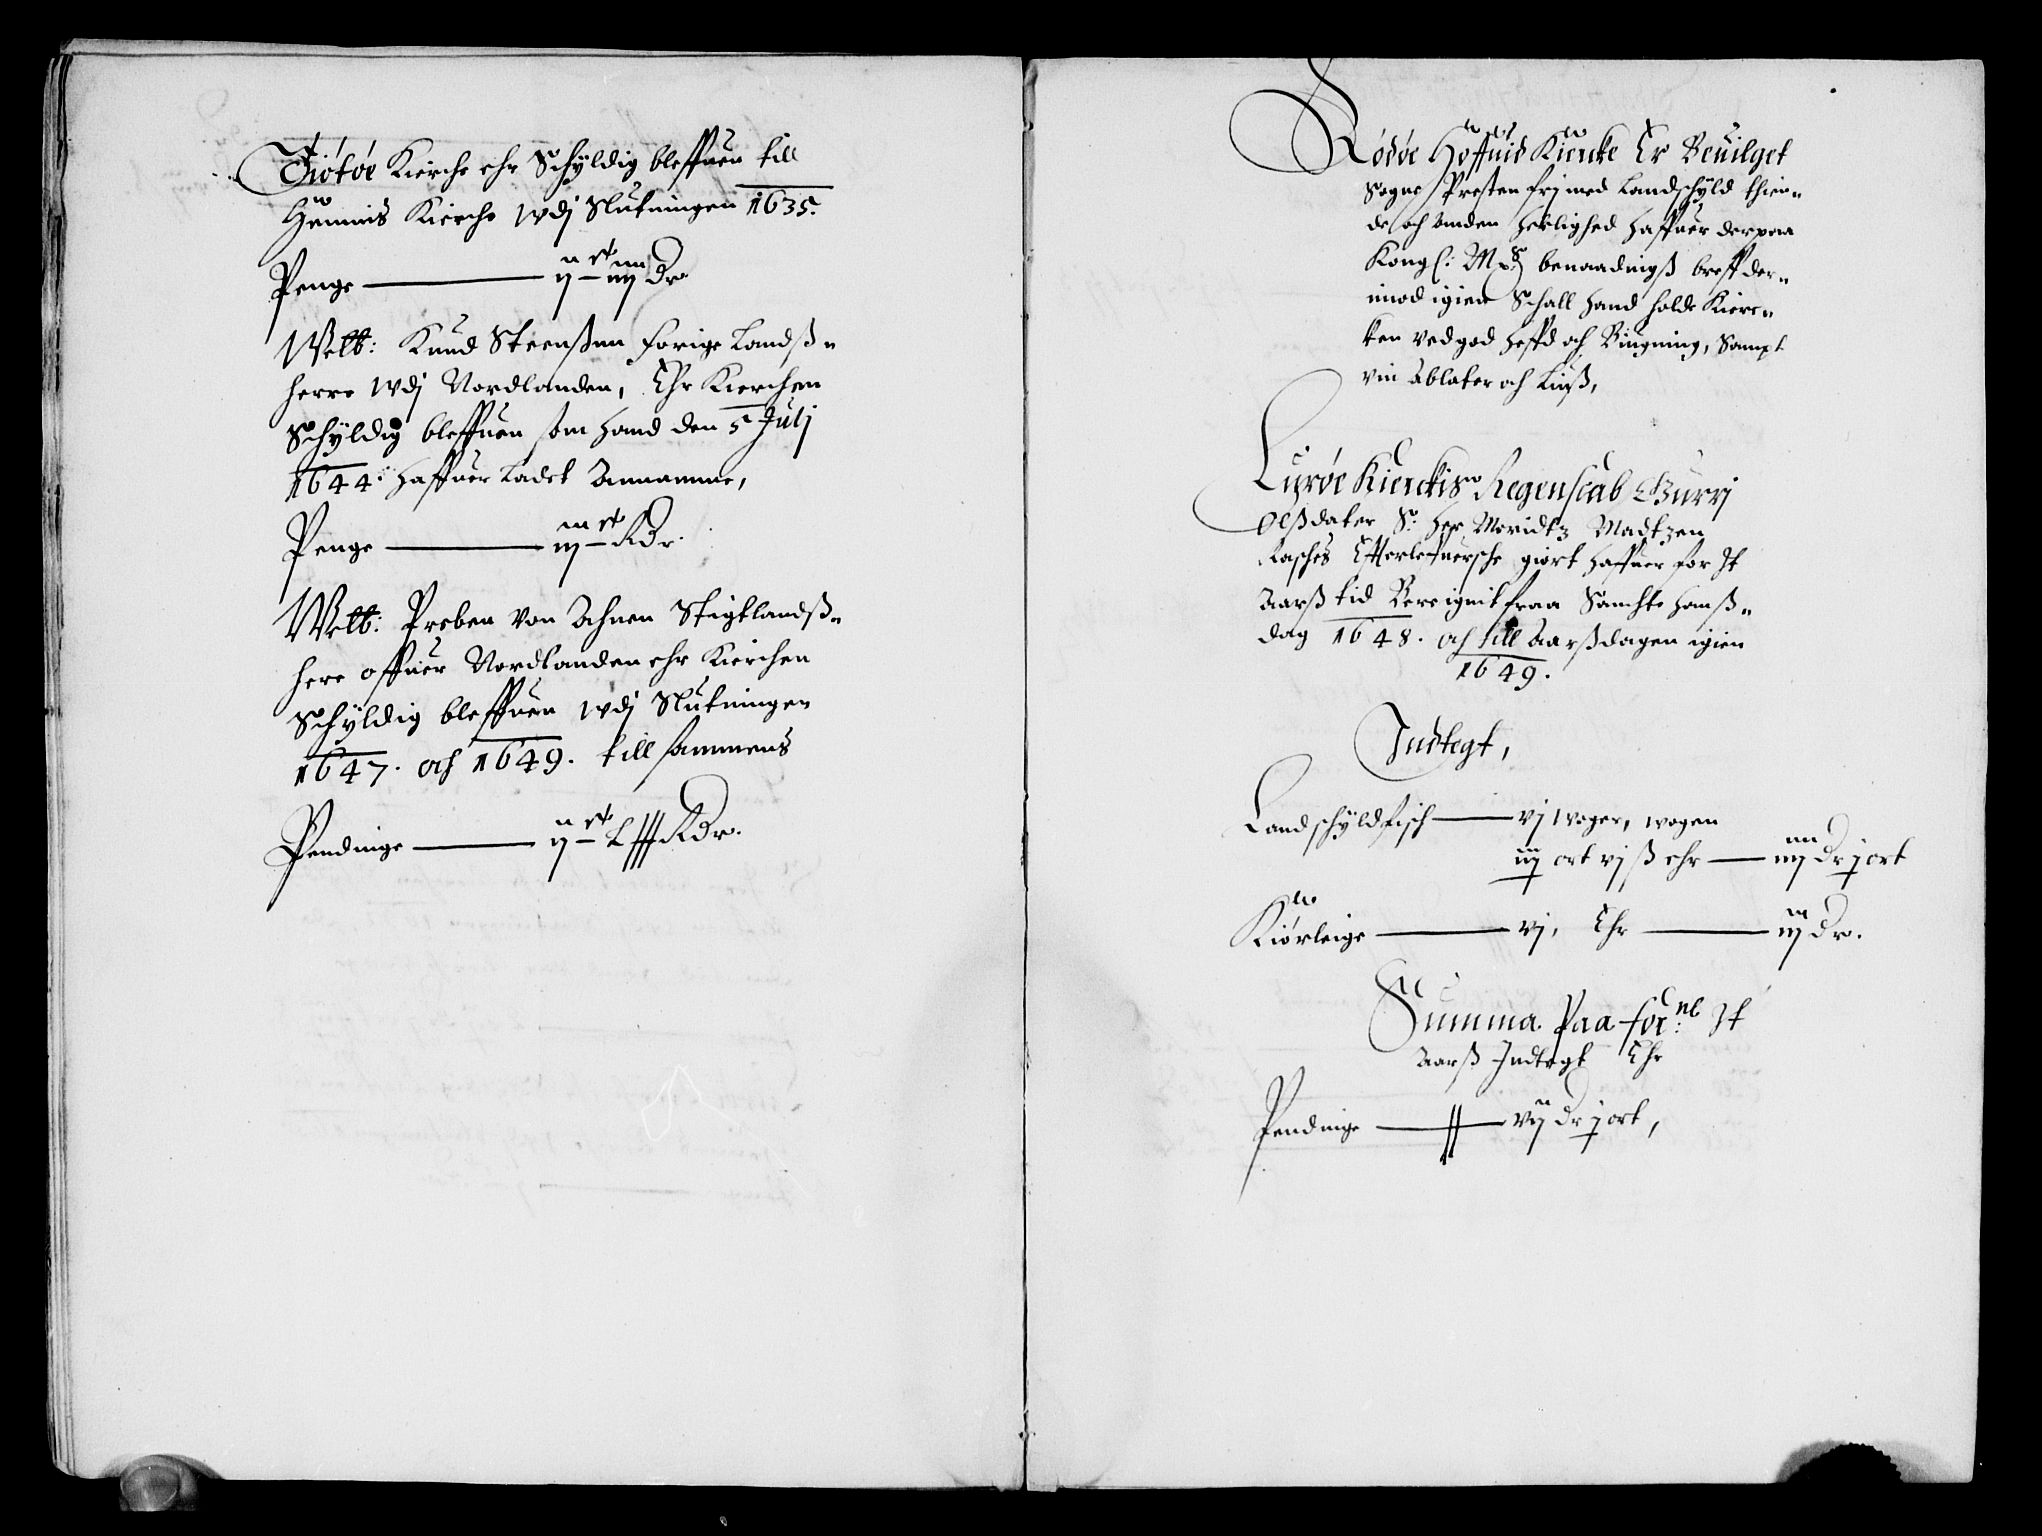 Tiötöe Kierche ehr Schÿldig bleffuen till
Hemnis Kierche wdj Slutningen 1635.
Penge — ij c iiij Dr
Welb: Knud Steenßen forige Landß-
herre wdj Nordlanden, Ehr Kierchen
Schÿldig bleffuen som hand den 5 Julj
1644: haffuer Ladet Annamme,
Penge — iij c RDr.
Welb: Preben von Ahnen Stigtlandß-
here offuer Nordlanden ehr Kierchen
Schÿldig bleffuen wdj Slutningen
1647. och 1649. till sammens
Pendinge — ij c L RDr.
Rödöe Hoffuid Kiercke Er Beuilget
Sogne Presten frj med Landschÿld thien-
de och anden herlighed haffuer derpaa
Kongl: Mas benaadingß breff der-
imod igien Schall hand holde Kierc-
ken ved god heffd och Bÿgning, Sampt
vin Ablater och Liuß,
Luröe Kierckis Regenscab Gurrj
Olßdater S: Her Moridtz Madtzen
Rasches Effterlefuersche giort haffuer for Jt
Aarß tid Bereignit fraa Sancthe Hanß-
dag 1648. och till Aarßdagen igien
1649.
Indtegt,
Landschÿld fisch — vj woger, wogen
iij ort vj ß ehr — iiij Dr j ort
Kiörleige — vj, Ehr — iij Dr.
Summa Paa for:ne Jt
Aarß Indtegt Ehr
Pendinge — vij Dr j ort,